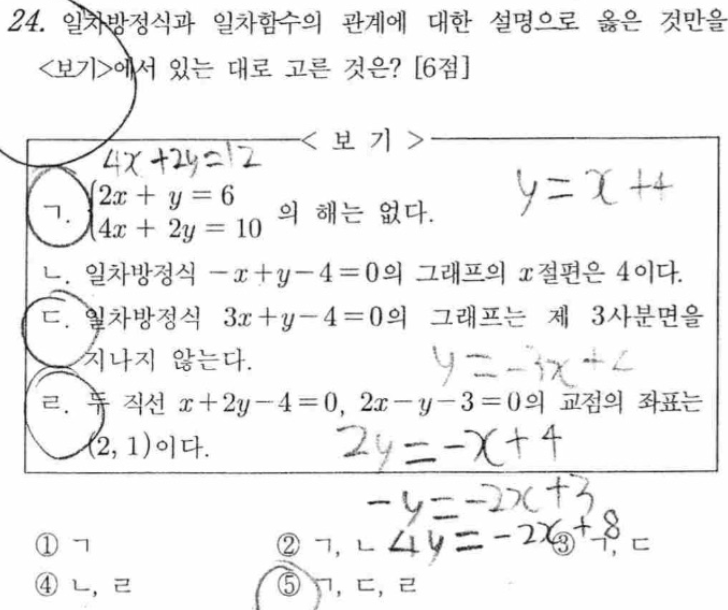 24. 일차방정식과 일차함수의 관계에 대한 설명으로 옳은 것만을
<보기>에서 있는 대로 고른 것은? [6점]
< 보 기 >
4x+2y=12
2x + y = 6
y = x + 4
ㄱ. 의 해는 없다.
4x + 2y = 10
ㄴ. 일차방정식 -x+y-4=0의 그래프의 x절편은 4이다.
ㄷ. 일차방정식 3x+y-4=0의 그래프는 제 3사분면을
지나지 않는다.
y=-3x+4
ㄹ. 두 직선 x+2y-4=0, 2x-y-3=0의 교점의 좌표는
(2, 1)이다.
2y=-x+4
-y=-2x+3
4y=-2x+8
① ㄱ ② ㄱ, ㄴ ③ ㄱ, ㄷ
④ ㄴ, ㄹ ⑤ ㄱ, ㄷ, ㄹ